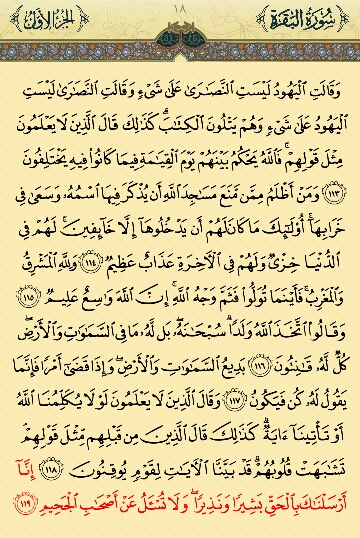 سُورَةُ الْبَقَرَةِ ١٨ الجُزْءُ الأَوَّلُ
وَقَالَتِ الْيَهُودُ لَيْسَتِ النَّصَارَىٰ عَلَىٰ شَيْءٍ وَقَالَتِ النَّصَارَىٰ لَيْسَتِ
الْيَهُودُ عَلَىٰ شَيْءٍ وَهُمْ يَتْلُونَ الْكِتَابَ ۗ كَذَٰلِكَ قَالَ الَّذِينَ لَا يَعْلَمُونَ
مِثْلَ قَوْلِهِمْ ۚ فَاللَّهُ يَحْكُمُ بَيْنَهُمْ يَوْمَ الْقِيَامَةِ فِيمَا كَانُوا فِيهِ يَخْتَلِفُونَ
﴿١١٣﴾ وَمَنْ أَظْلَمُ مِمَّن مَّنَعَ مَسَاجِدَ اللَّهِ أَن يُذْكَرَ فِيهَا اسْمُهُ وَسَعَىٰ فِي
خَرَابِهَا ۚ أُولَٰئِكَ مَا كَانَ لَهُمْ أَن يَدْخُلُوهَا إِلَّا خَائِفِينَ ۚ لَهُمْ فِي
الدُّنْيَا خِزْيٌ وَلَهُمْ فِي الْآخِرَةِ عَذَابٌ عَظِيمٌ ﴿١١٤﴾ وَلِلَّهِ الْمَشْرِقُ
وَالْمَغْرِبُ ۚ فَأَيْنَمَا تُوَلُّوا فَثَمَّ وَجْهُ اللَّهِ ۚ إِنَّ اللَّهَ وَاسِعٌ عَلِيمٌ ﴿١١٥﴾
وَقَالُوا اتَّخَذَ اللَّهُ وَلَدًا ۗ سُبْحَانَهُ ۖ بَل لَّهُ مَا فِي السَّمَاوَاتِ وَالْأَرْضِ ۖ
كُلٌّ لَّهُ قَانِتُونَ ﴿١١٦﴾ بَدِيعُ السَّمَاوَاتِ وَالْأَرْضِ ۖ وَإِذَا قَضَىٰ أَمْرًا فَإِنَّمَا
يَقُولُ لَهُ كُن فَيَكُونُ ﴿١١٧﴾ وَقَالَ الَّذِينَ لَا يَعْلَمُونَ لَوْلَا يُكَلِّمُنَا اللَّهُ
أَوْ تَأْتِينَا آيَةٌ ۗ كَذَٰلِكَ قَالَ الَّذِينَ مِن قَبْلِهِم مِّثْلَ قَوْلِهِمْ ۘ
تَشَابَهَتْ قُلُوبُهُمْ ۗ قَدْ بَيَّنَّا الْآيَاتِ لِقَوْمٍ يُوقِنُونَ ﴿١١٨﴾ إِنَّا
أَرْسَلْنَاكَ بِالْحَقِّ بَشِيرًا وَنَذِيرًا ۖ وَلَا تُسْأَلُ عَنْ أَصْحَابِ الْجَحِيمِ ﴿١١٩﴾